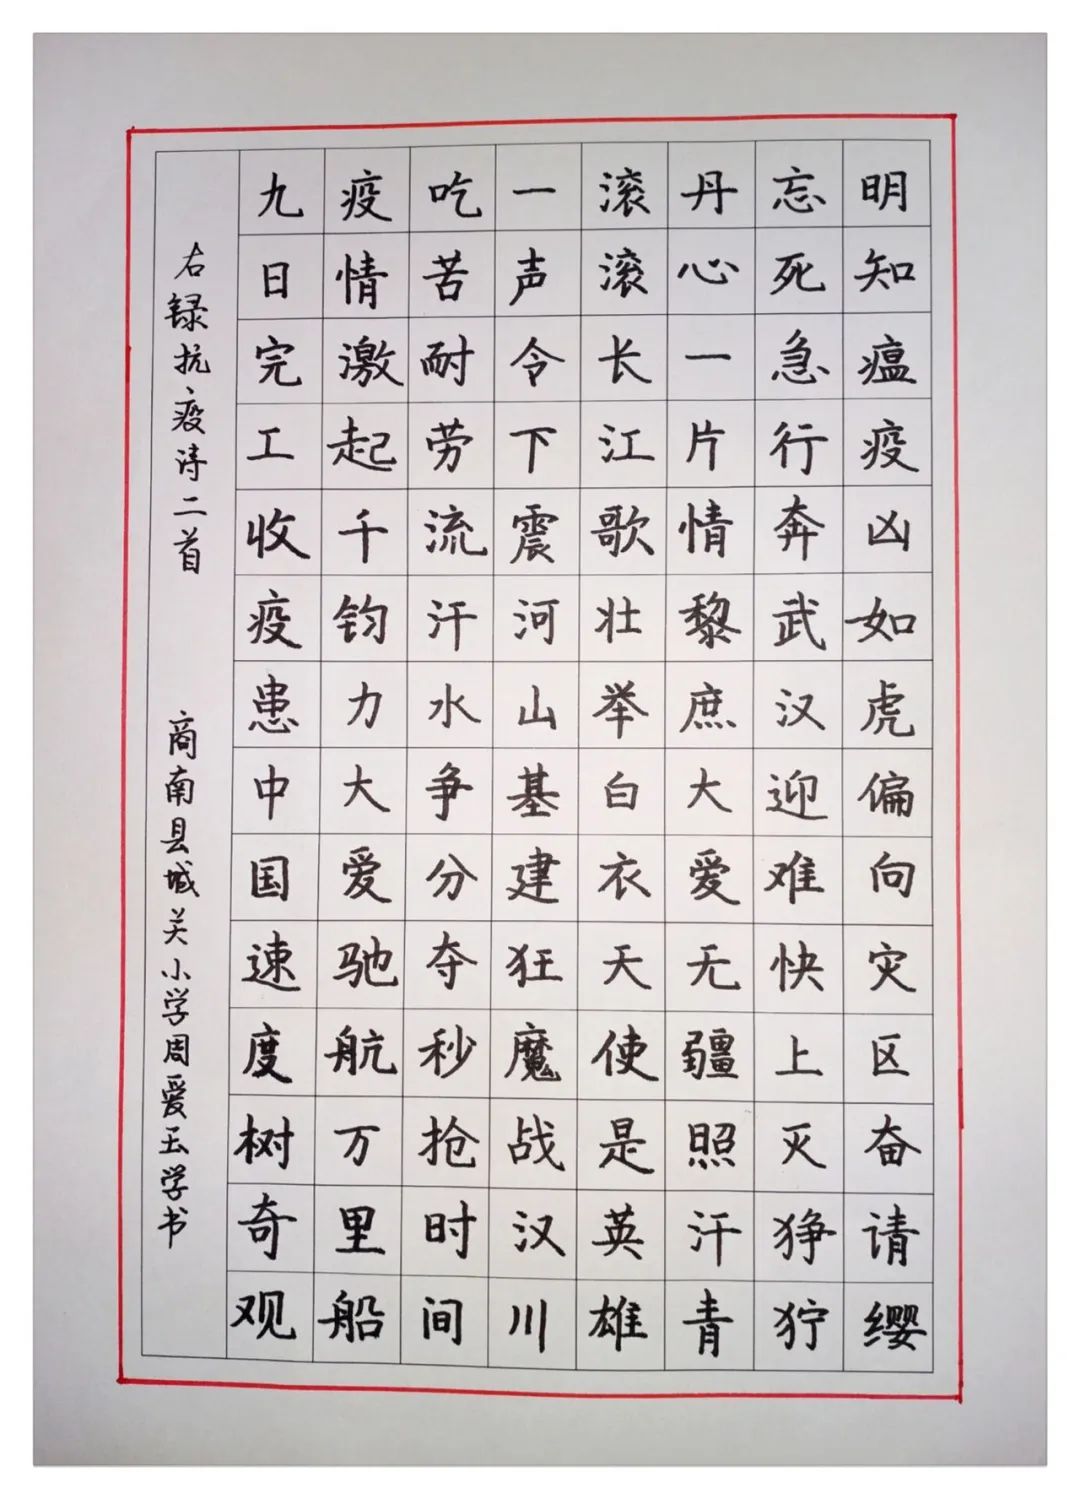 明知瘟疫凶如虎偏向灾区奋请缨
忘死急行奔武汉迎难快上灭狰狞
丹心一片情黎庶大爱无疆照汗青
滚滚长江歌壮举白衣天使是英雄
一声令下震河山基建狂魔战汉川
吃苦耐劳流汗水争分夺秒抢时间
疫情激起千钧力大爱驰航万里船
九日完工收疫患中国速度树奇观
右録抗疫诗二首 商南县城关小学周爱玉学书